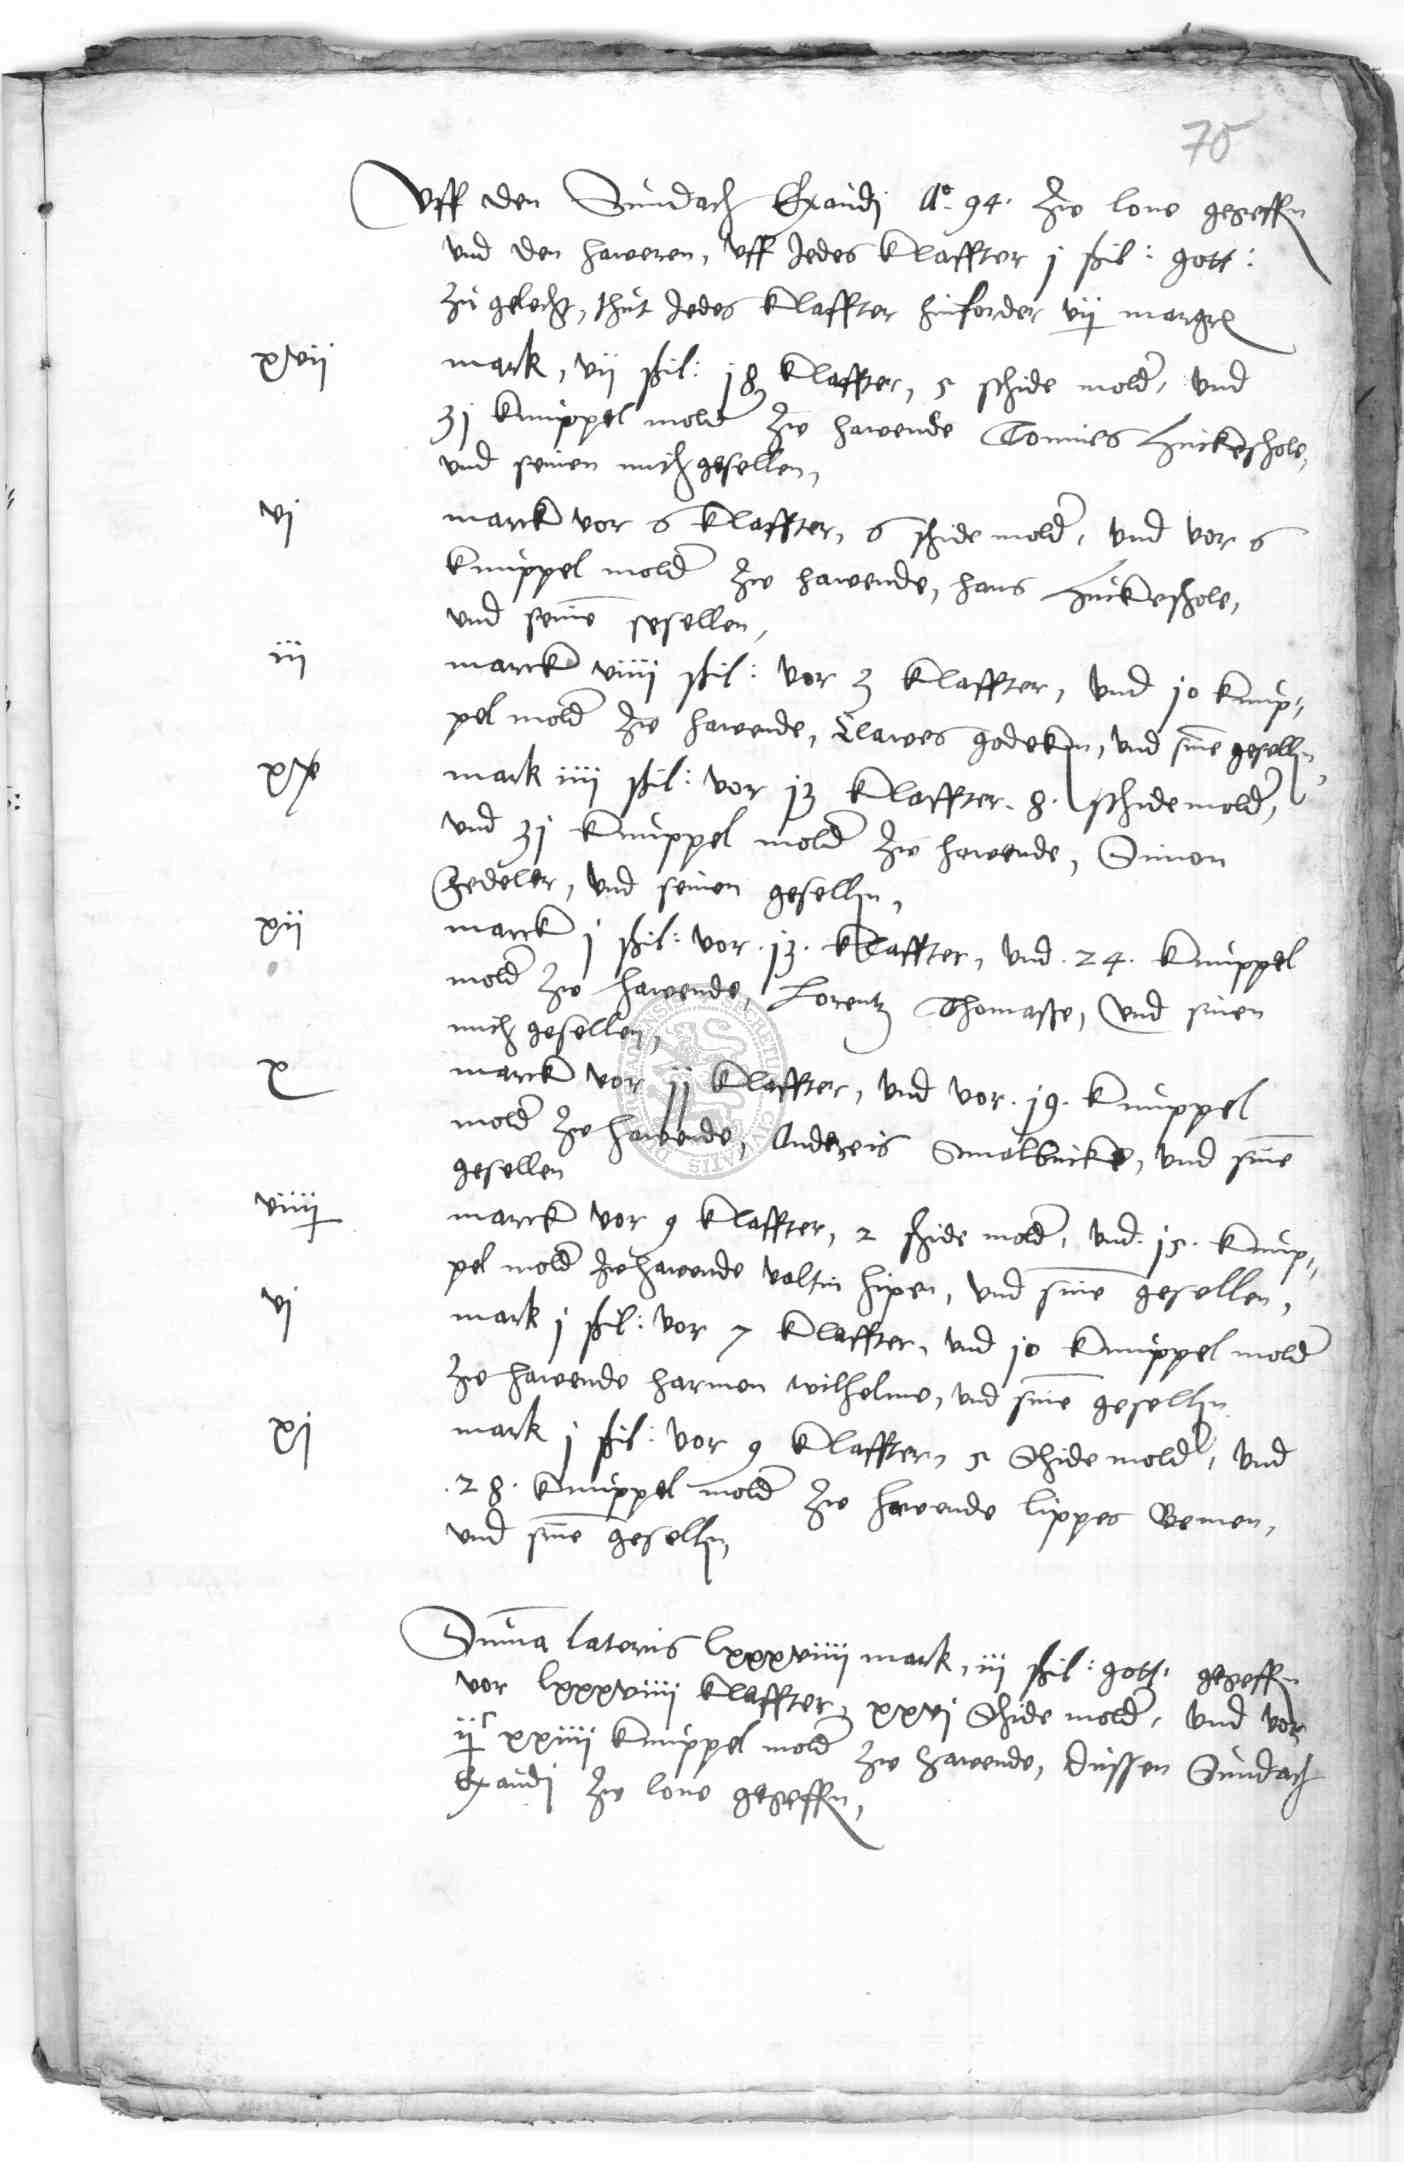 70
Uff den Sundach Exaudj Ao. 94. zw lone gegeffn
und den haweren, uff Jedes Klaffter j ßil: gott:
zu gelecht, thut Jedes Klaffter hinforder vij margr
xvii mark, vii ßil: j8 Klaffter, 5 schide mold, und
3j knuppel mold zw hawende Tonnies Huickeshole,
und seinen mithgesellen,
vj marck vor 6 Klaffter, 6 schide mold, und vor 6
knuppel mold zw hawende, hans Huickeshole,
und seine gesellen,
iii marck viiii ßil: vor 3 Klaffter, und j0 knup„
pel mold zw hawende, Clawes godeken, und sine geselln,
mark iiii ßil: vor j3 Klaffter. 8. schide mold,
und 3j knuppel mold zw hawende, Simon
Zedeler, und seinen geselln,
xii marck j ßil: vor. j3. Klaffter, und. 24. knuppel
mold zw hawende, Lorentz Thomasse, und sinen
mithgesellen,
x marck vor jj Klaffter, und vor. j9. knuppel
mold zw hawende, Andereis Smalbuick, und sine
gesellen
viiij marck vor 9 Klaffter, 2 schide mold, und. j5. knup„
pel mold zw hawende valtin hipen, und sine gesellen,
vj mark j ßil: vor 7 Klaffter, und j0 knuppel mold
zw hawende harmen wilhelme, und sine geselln
xj mark j ßil: vor 9 Klaffter, 5 Schide mold, und
.28. knuppel mold zw hawende lippes Bemen,
und sine geselln,
Suma lateris lxxxviiii mark, iii ßil: gott. gegeffn
vor lxxxviiii Klaffter, xxvj Schide mold, und vor
ijc xxiiii knuppel mold zw hawende, dussen Sundach
Exaudj zw lone gegeffn,